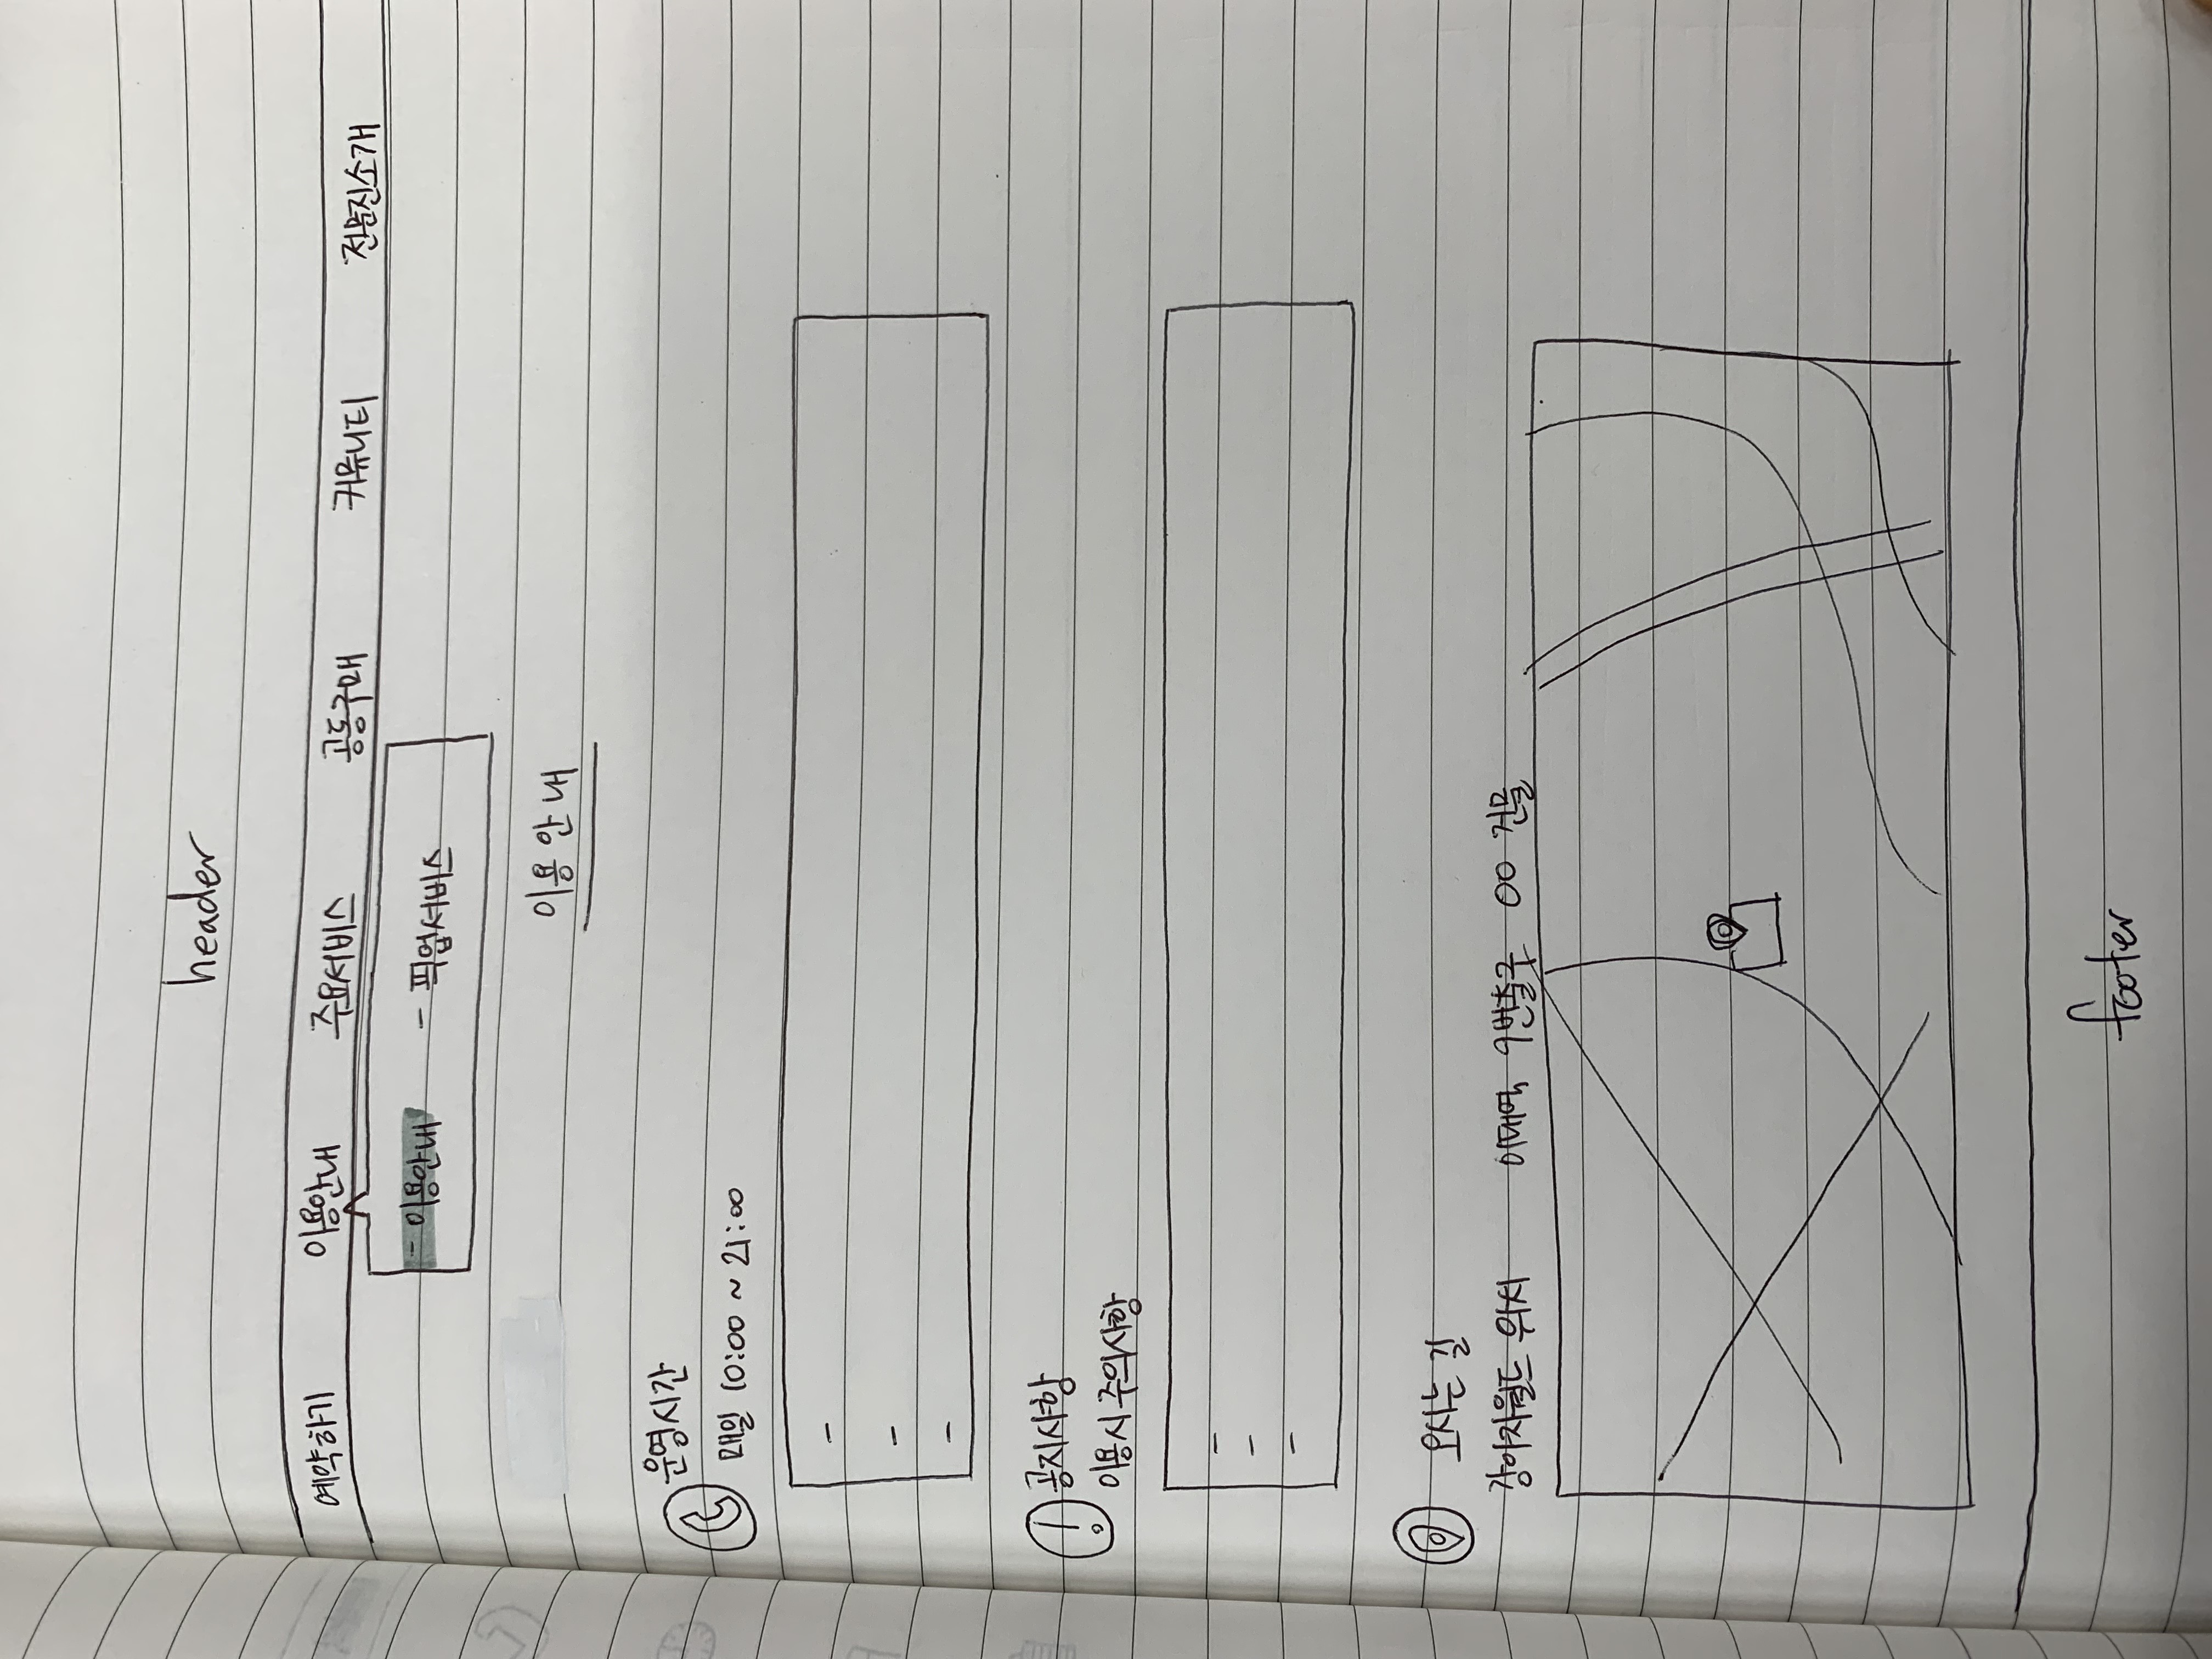 header
예약하기 이용안내 주요서비스 공동구매 커뮤니티 전문진소개
- 이용안내 - 픽업서비스
이용안내
운영시간
매일 10:00 ~ 21:00
-
-
-
! 공지사항
이용시 주의사항
-
-
-
오시는 길
강아지월드 위치 이대역 9번출구 00 건물
footer